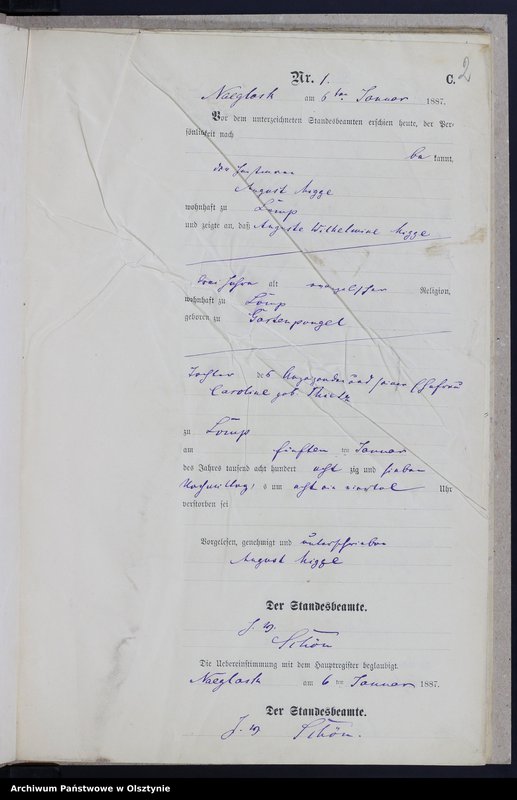 2
Nr. 1. C.
Naeglack am 6ten Januar 1887.
Vor dem unterzeichneten Standesbeamten erschien heute, der Per=
sönlichkeit nach
be kannt,
der Instmann
August Migge
wohnhaft zu Lomp
und zeigte an, daß Auguste Wilhelmine Migge
drei Jahre alt evangelischer Religion,
wohnhaft zu Lomp
geboren zu Gartenpungel
Tochter des Anzeigenden und seiner Ehefrau
Caroline geb.
zu Lomp
am fünften ten Januar
des Jahres tausend acht hundert acht zig und sieben
Nachmittags um acht ein viertel Uhr
verstorben sei
Vorgelesen, genehmigt und unterschrieben
August Migge
Der Standesbeamte.
Schön
Die Uebereinstimmung mit dem Hauptregister beglaubigt.
Naeglack am 6 ten Januar 1887.
Der Standesbeamte.
Schön.
Archiwum Państwowe w Olsztynie